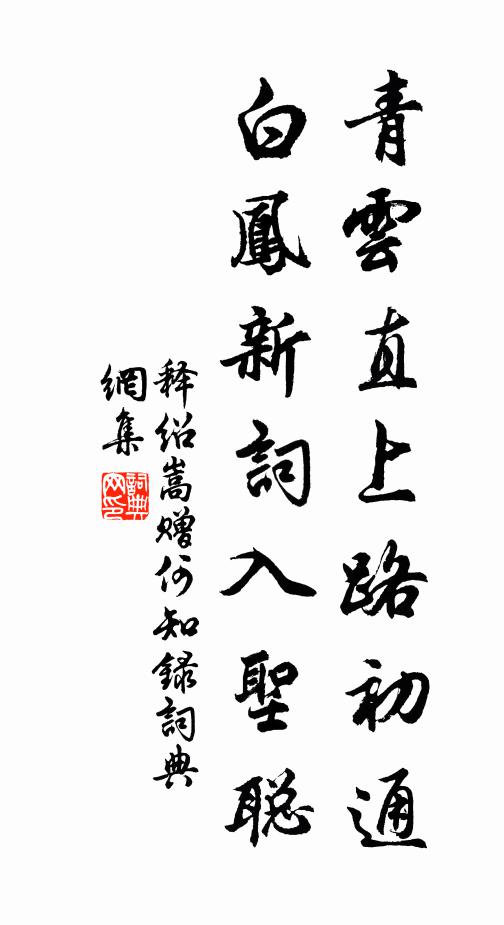 青雲直上路初通
白鳳新詞入聖聡
释绍嵩赠何知録詞典
網集
詞典
网印